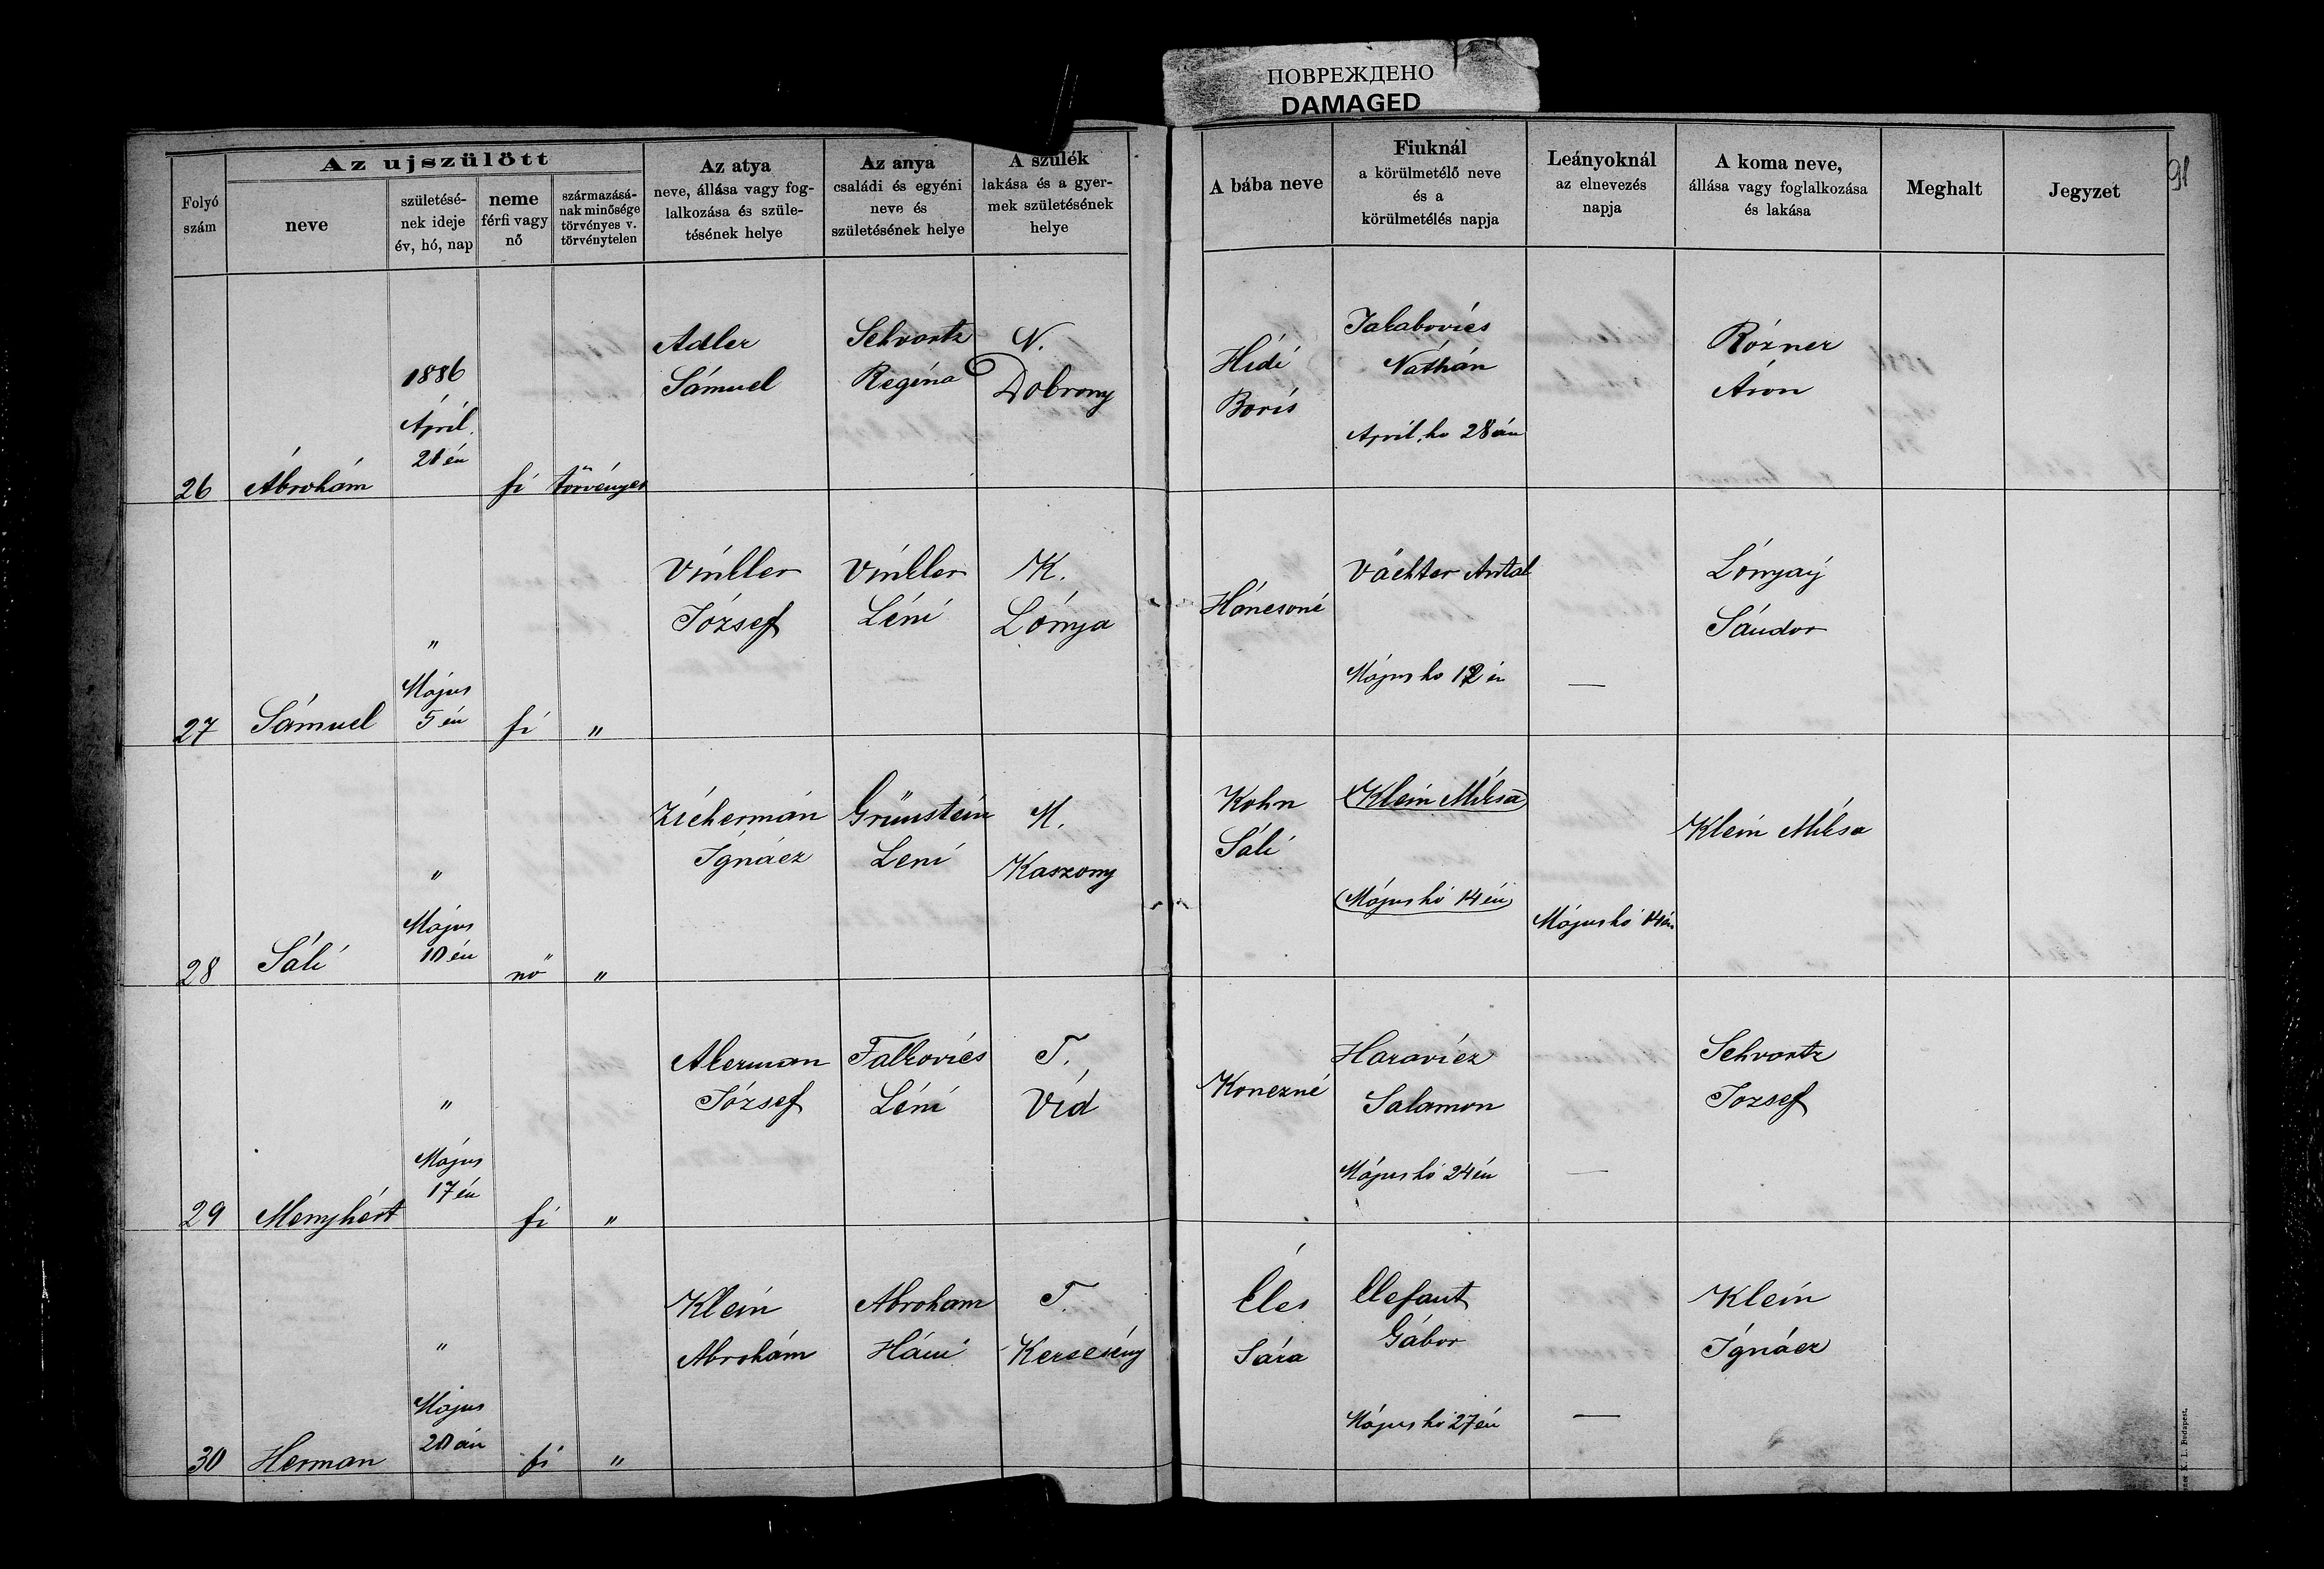 ПОВРЕЖДЕНО
DAMAGED
91
Folyó
szám
Az ujszülött
neve
születésé-
nek ideje
év, hó, nap
neme
férfi vagy
nő
származásá-
nak minősége
törvényes v.
törvénytelen
Az atya
neve, állása vagy fog-
lalkozása és szüle-
tésének helye
Az anya
családi és egyéni
neve és
születésének helye
A szülék
lakása és a gyer-
mek születésének
helye
A bába neve
Fiuknál
a körülmetélő neve
és a
körülmetélés napja
Leányoknál
az elnevezés
napja
A koma neve,
állása vagy foglalkozása
és lakása
Meghalt
Jegyzet
26
Ábrohám
1886
Ápril.
21 én
fi
törvényes
Adler
Sámuel
Schvartz
Regina
N.
Dobrony
Hidi
Boris
Jakabovics
Náthán
April. ho 28 án
Rózner
Áron
27
Sámuel
"
Május
5 én
fi
"
Vinkler
József
Vinkler
Léni
K.
Lónya
Háncsoné
Vächter Antal
Május ho 12 én
—
Lónyay
Sándor
28
Sáli
"
Május
10 én
nő
"
Zichermán
Ignácz
Grünstein
Leni
M.
Kaszony
Kohn
Sáli
(Klein Miksa)
(Május hó 14 én)
Május hó 14 én
Klein Miksa
29
Menyhért
"
Május
17 én
fi
"
Akerman
József
Falkovics
Léni
T.
Vid
Konczné
Haravicz
Salamon
Május hó 24 én
—
Schvartz
Jozsef
30
Herman
"
Május
20 án
fi
"
Klein
Abrohám
Abroham
Háni
T.
Kerecsény
Éles
Sára
Elefant
Gábor
Május hó 27 én
—
Klein
Ignácz
K. I. Budapest.